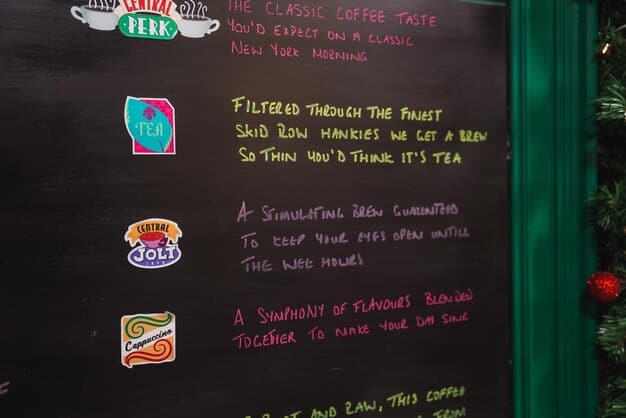 CENTRAL
PERK
THE CLASSIC COFFEE TASTE
YOU'D EXPECT ON A CLASSIC
NEW YORK MORNING
TEA
FILTERED THROUGH THE FINEST
SKID ROW HANKIES WE GET A BREW
SO THIN YOU'D THINK IT'S TEA
CENTRAL
JOLT
A STIMULATING BREW GUARENTEED
TO KEEP YOUR EYES OPEN UNTILL
THE WEE HOURS
Cappuccino
A SYMPHONY OF FLAVOURS BLENDED
TOGETHER TO MAKE YOUR DAY SING
AND RAW, THIS COFFEE
FROM